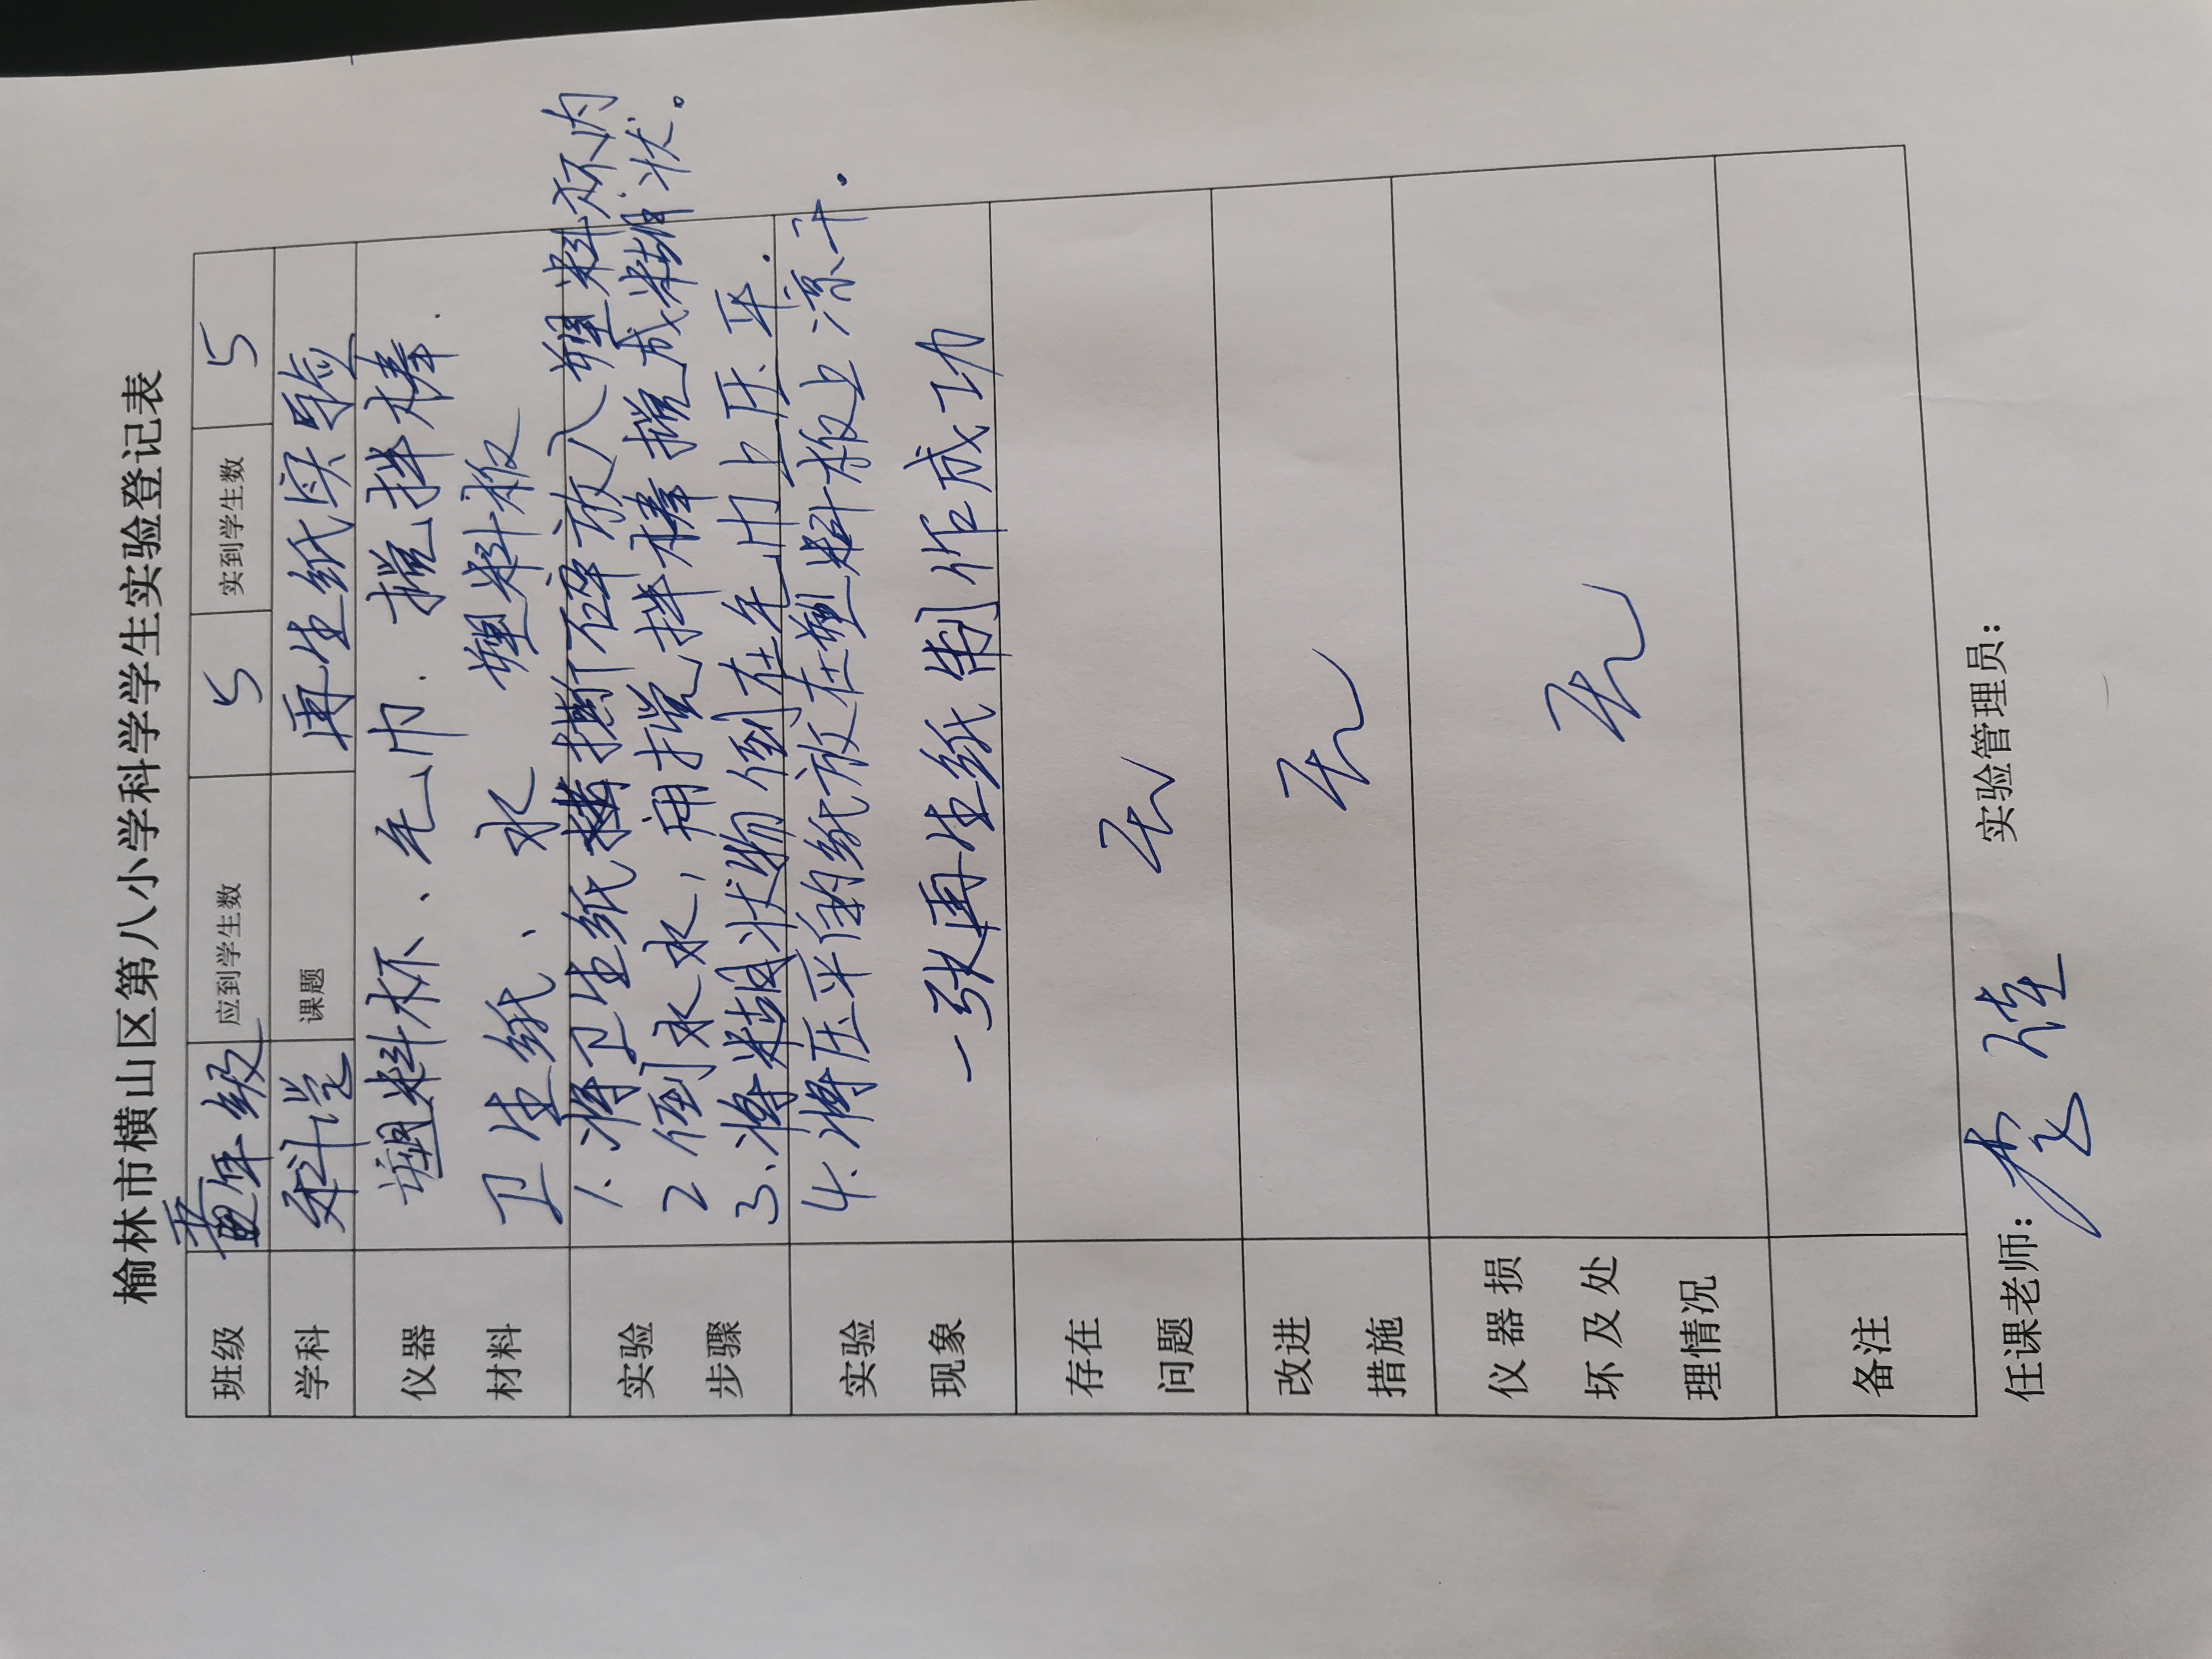 榆林市横山区第八小学科学学生实验登记表
班级 年级 应到学生数 5 实到学生数 5
学科 科学 课题 再生纸实验
仪器 塑料杯、毛巾. 搅拌棒.
材料 卫生纸、水 塑料板
实验 1.将卫生纸撕碎放入塑料杯内
2倒水,用搅拌棒搅成糊状。
步骤 3、将糊状物倒在毛巾上压平.
4、将压平的纸放在塑料板上凉干.
实验
现象 一张再生纸制作成功
存在
问题 无
改进
措施 无
仪器损
坏及处 无
理情况
备注
任课老师: 实验管理员: